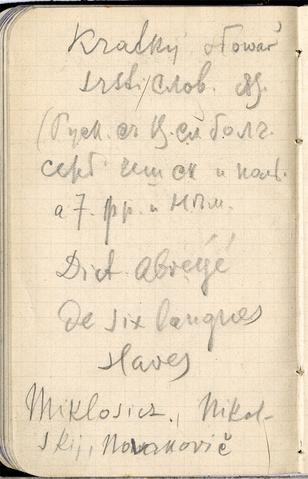 Kratký slowař
šesti слов. яз.
(Русск. ст ц.сл болг.
серб чешск и польс.
а 7. фр. и нѣм.
Dict. abrégé
de six langues
slaves
Miklosicz, Nikol-
skij, Novakovič